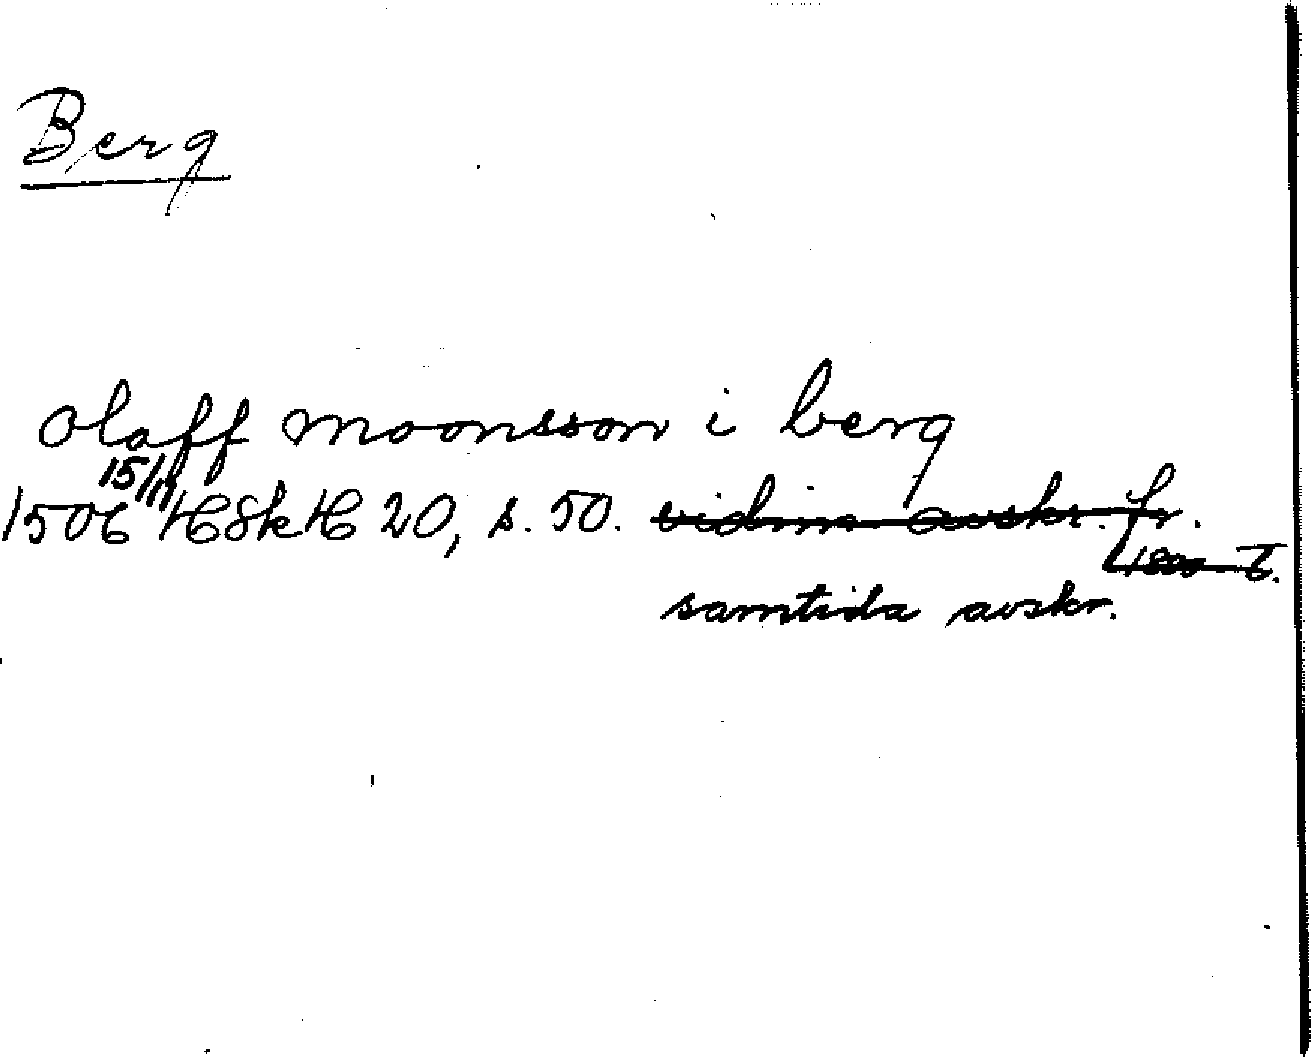 Berg
olaff moonsson i berg
15/11
1506 HSkH 20, s. 50. vidim. avskr. fr.
1800-t.
samtida avskr.